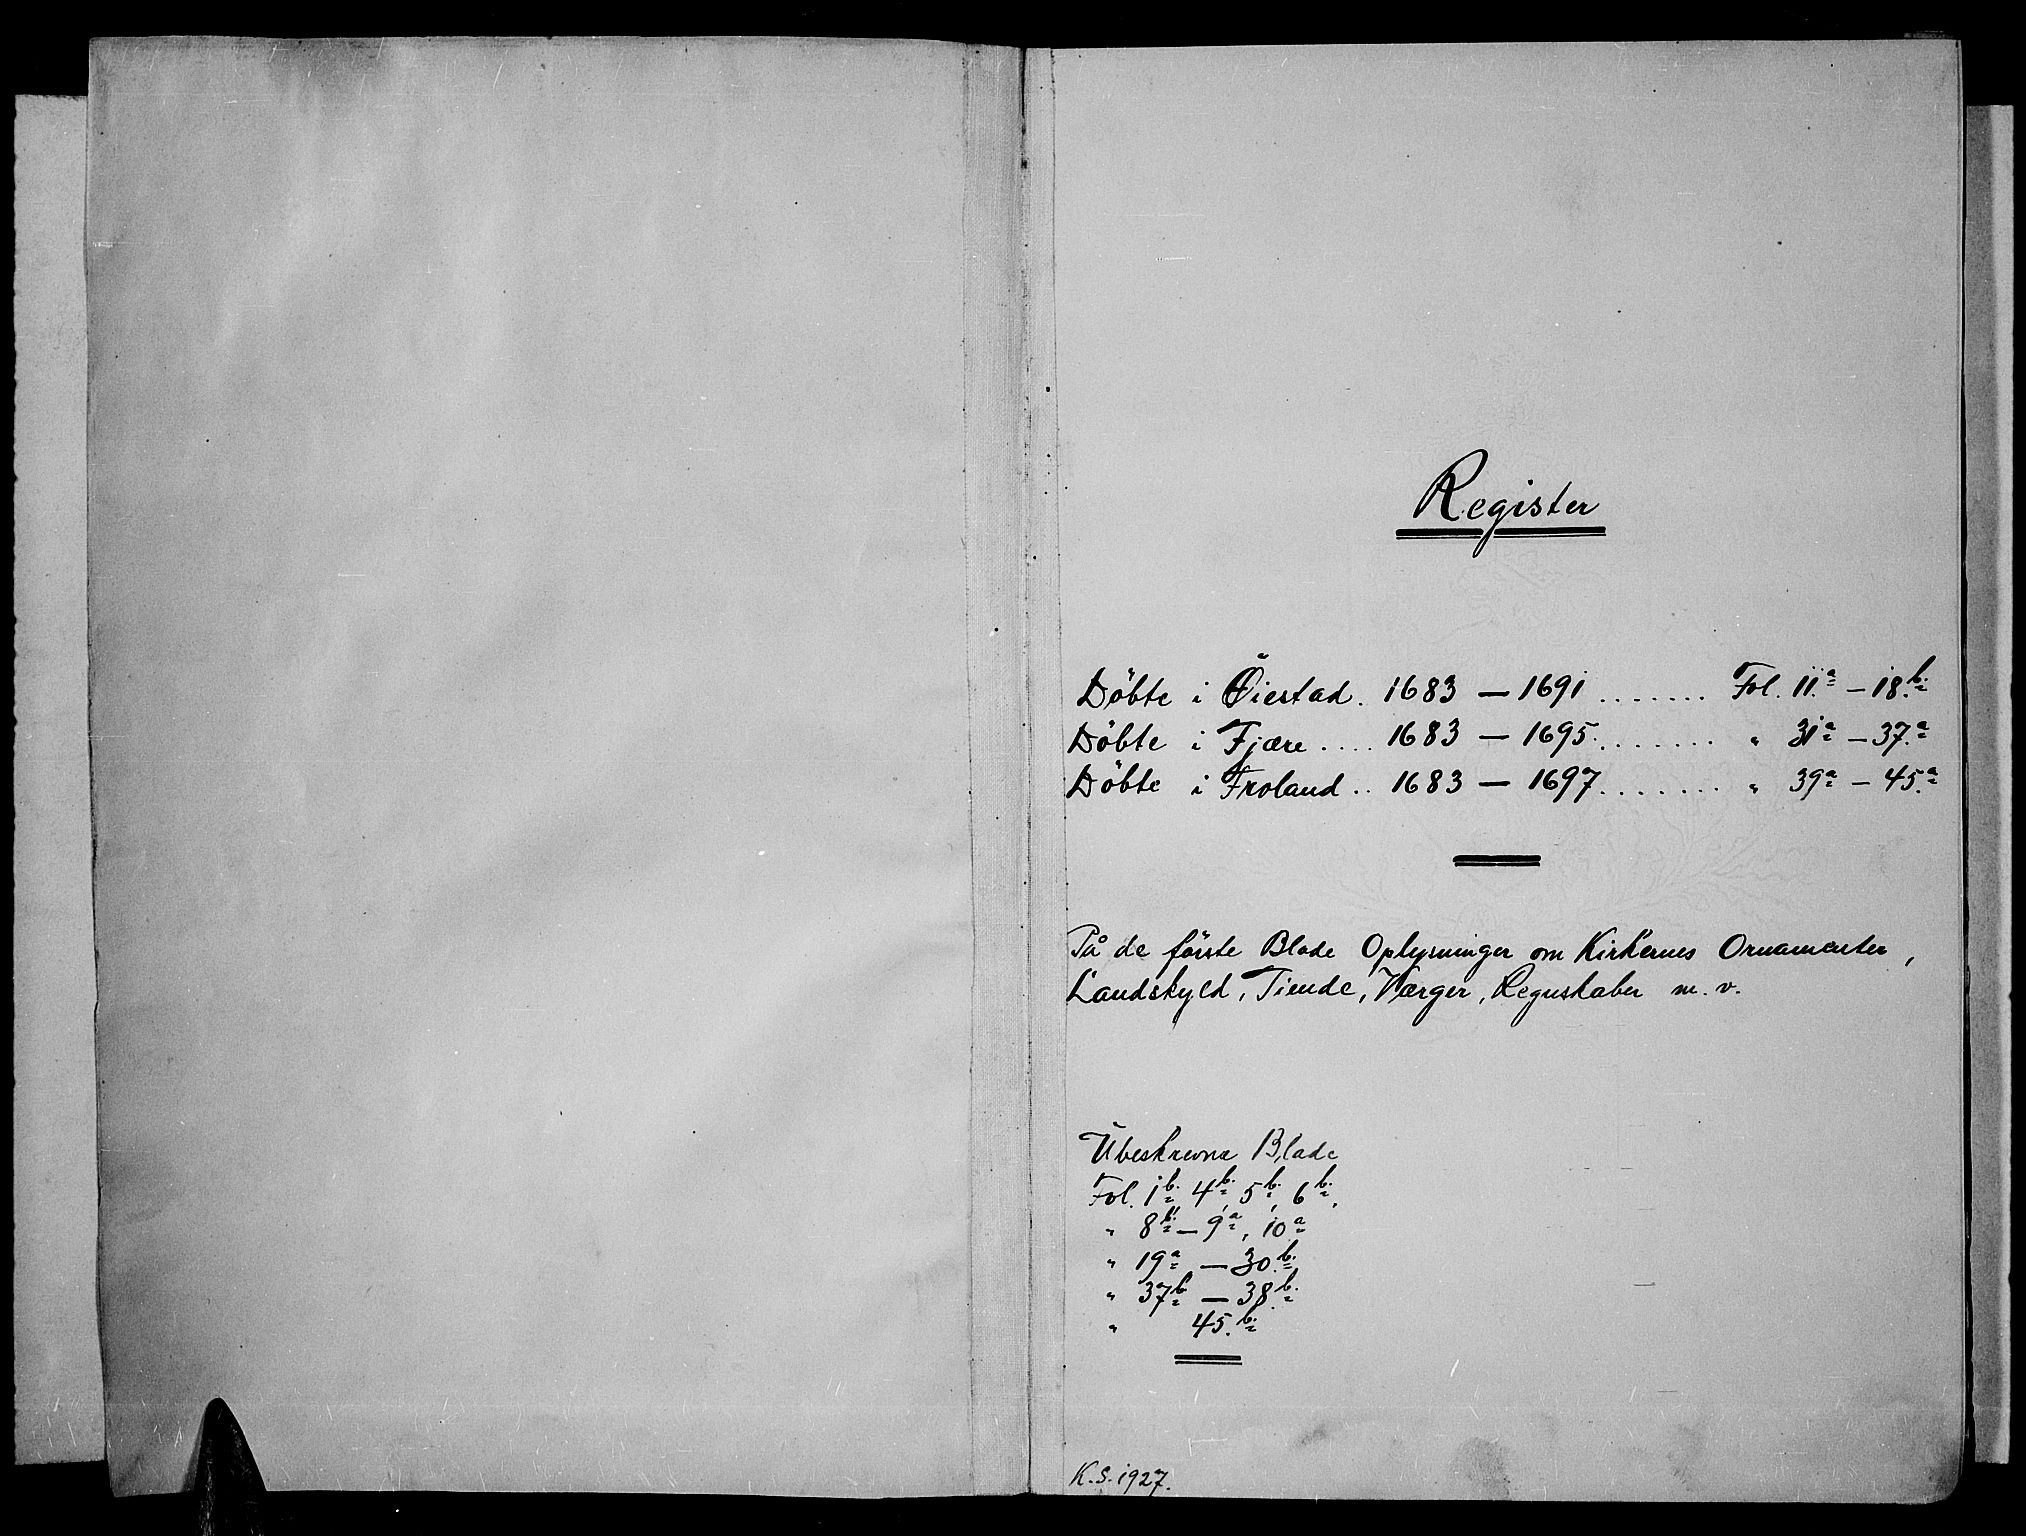 Register
Döbte i Öiestad. 1683 — 1691 ....... Fol. 11.a — 18.b.
Döbte i Fjære .... 1683 — 1695 ....... " 31a — 37.a
Döbte i Froland .. 1683 — 1697 ....... " 39a — 45.a
På de förste Blade Oplysninger om Kirkernes Ornamenter,
Landskyld, Tiende, Værger, Regnskaber m. v.
Ubeskrevne Blade
Fol. 1b. 4b. 5b. 6b.,
" 8b. — 9a, 10a
" 19a — 30.b.
" 37b — 38b.
" 45.b.
K.S. 1927.